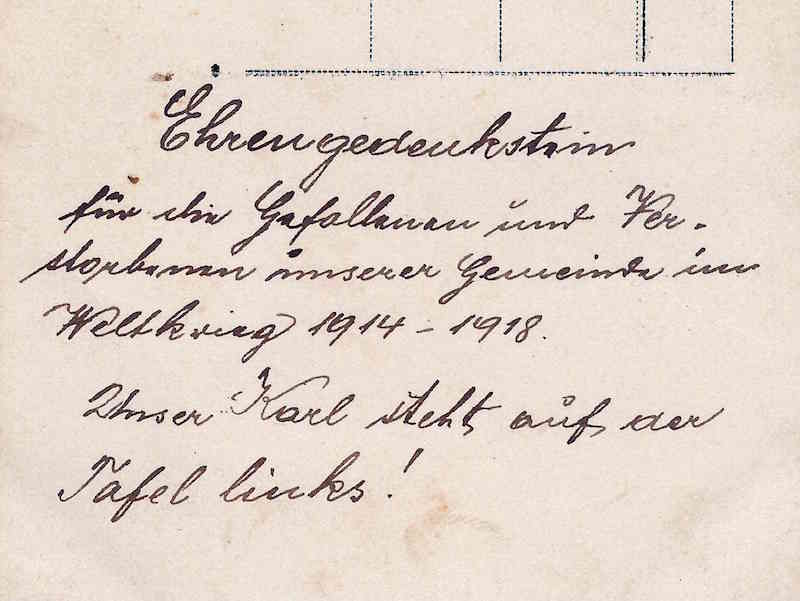 Ehrengedenkstein
für die Gefallenen und Ver-
storbenen unserer Gemeinde im
Weltkrieg 1914 - 1918.
Unser Karl steht auf der
Tafel links!